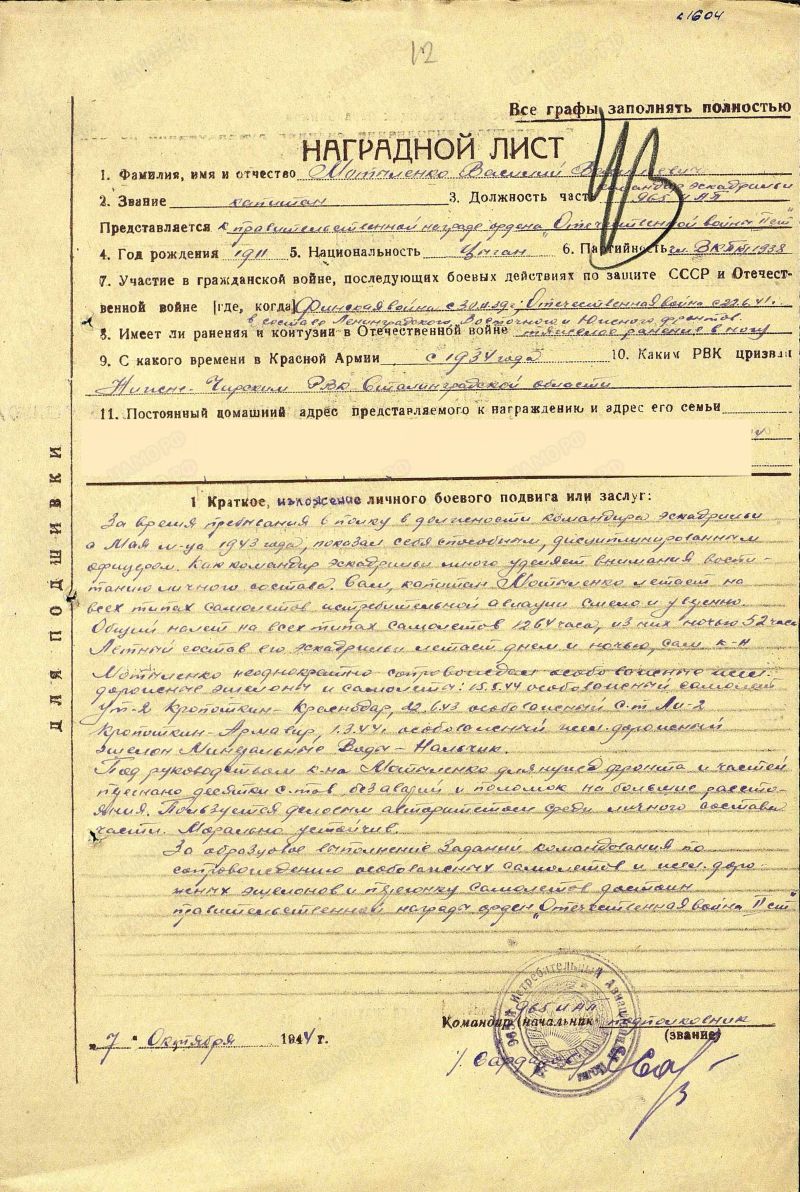 с1604
12
Все графы заполнять полностью
НАГРАДНОЙ ЛИСТ
1. Фамилия, имя и отчество Мотыленко Василий Васильевич
2. Звание капитан 3. Должность часть командир эскадрильи
965 ИАП
Представляется к правительственной награде ордена "Отечественной войны II ст"
4. Год рождения 1911 5. Национальность Цыган 6. Партийность чл. ВКП(б) 1938
7. Участие в гражданской войне, последующих боевых действиях по защите СССР и Отечест-
венной войне [где, когда] Финская война с 30.11.39г; Отечественная война с 22.6.41.
в составе Ленинградского, Восточного и Южного фронтов.
8. Имеет ли ранения и контузии в Отечественной войне тяжелое ранение в ногу
9. С какого времени в Красной Армии с 1934 года 10. Каким РВК призван
Нижне-Чирским РВК Сталинградской области
11. Постоянный домашний адрес представляемого к награждению и адрес его семьи
ДЛЯ ПОДШИВКИ
1 Краткое, изложение личного боевого подвига или заслуг:
За время пребывания в полку в должности командира эскадрильи
с Мая м-ца 1943 года, показал себя способным, дисциплинированным
офицером. Как командир эскадрильи много уделяет внимания воспи-
танию личного состава. Сам, капитан Мотыленко летает на
всех типах самолетов истребительной авиации смело и уверенно.
Общий налет на всех типах самолетов 1264 часа, из них ночью 52 часа
Летный состав его эскадрильи летает днем и ночью, сам к-н
Мотыленко неоднократно сопровождал особоважные жел.
дорожные эшелоны и самолеты: 15.5.44 особоважный самолет
УТ-2 Кропоткин-Краснодар, 22.6.43 особоважный с-т Ли-2
Кропоткин-Армавир, 1.3.44г. особоважный жел. дорожный
эшелон Минеральные Воды-Нальчик.
Под руководством к-на Мотыленко для нужд фронта и частей
перегнано десятки с-тов без аварий и поломок на большие расстоя-
яния. Пользуется деловым авторитетом среди личного состава
части. Морально устойчив.
За образцовое выполнение заданий командования по
сопровождению особоважных самолетов и жел. доро-
жных эшелонов и перегонку самолетов достоин
правительственной награды орден "Отечественная война II ст"
965 ИАП
Командир (начальник) подполковник
(звание)
„7" Октября 1944 г.